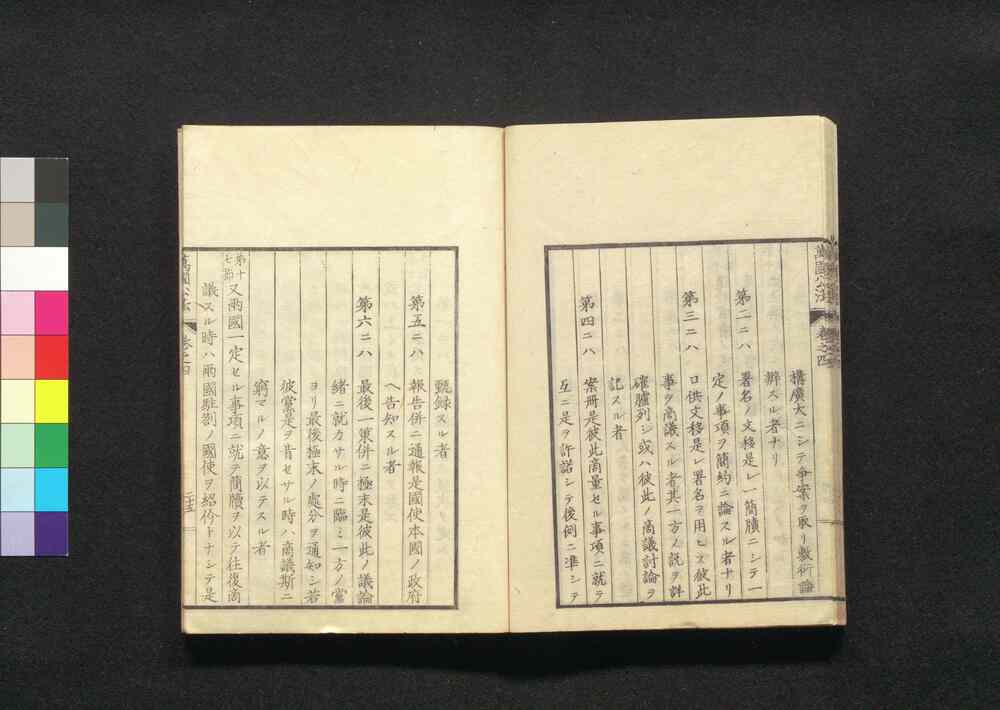 構廣大ニシテ爭案ヲ取リ敷衍論
辨スル者ナリ
第二ニハ 署名ノ文移是レ一簡牘ニシテ一
定ノ事項ヲ簡約ニ論スル者ナリ
第三ニハ 口供文移是レ署名ヲ用ヒス彼此
事ヲ商議スル者其一方ノ説ヲ詳
確臚列シ或ハ彼此ノ商議討論ヲ
記スル者
第四ニハ 案册是彼此商量セル事項ニ就テ
互ニ是ヲ許諾シテ後例ニ準シテ
甄録スル者
第五ニハ 報告併ニ通報是國使本國ノ政府
ヘ告知スル者
第六ニハ 最後一策併ニ極末是彼此ノ議論
緒ニ就カサル時ニ臨ミ一方ノ黨
ヨリ最後極末ノ處分ヲ通知シ若
彼黨是ヲ肯セサル時ハ商議斯ニ
窮マルノ意ヲ以テスル者
第十七節 又兩國一定セル事項ニ就テ簡牘ヲ以テ往復商
議スル時ハ兩國駐劄ノ國使ヲ紹价トナシテ是
萬國公法 卷之四